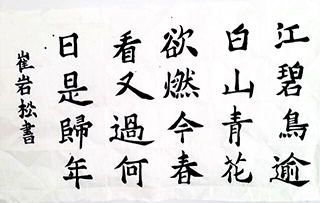 江碧鳥逾
白山青花
欲燃今春
看又過何
日是歸年
崔岩松書